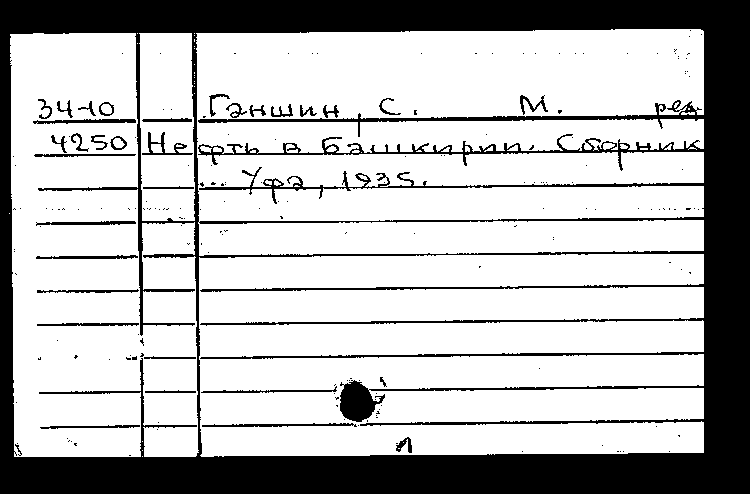 34-10 Ганшин, С. М. ред.
4250 Нефть в Башкирии. Сборник
... Уфа, 1935.
1